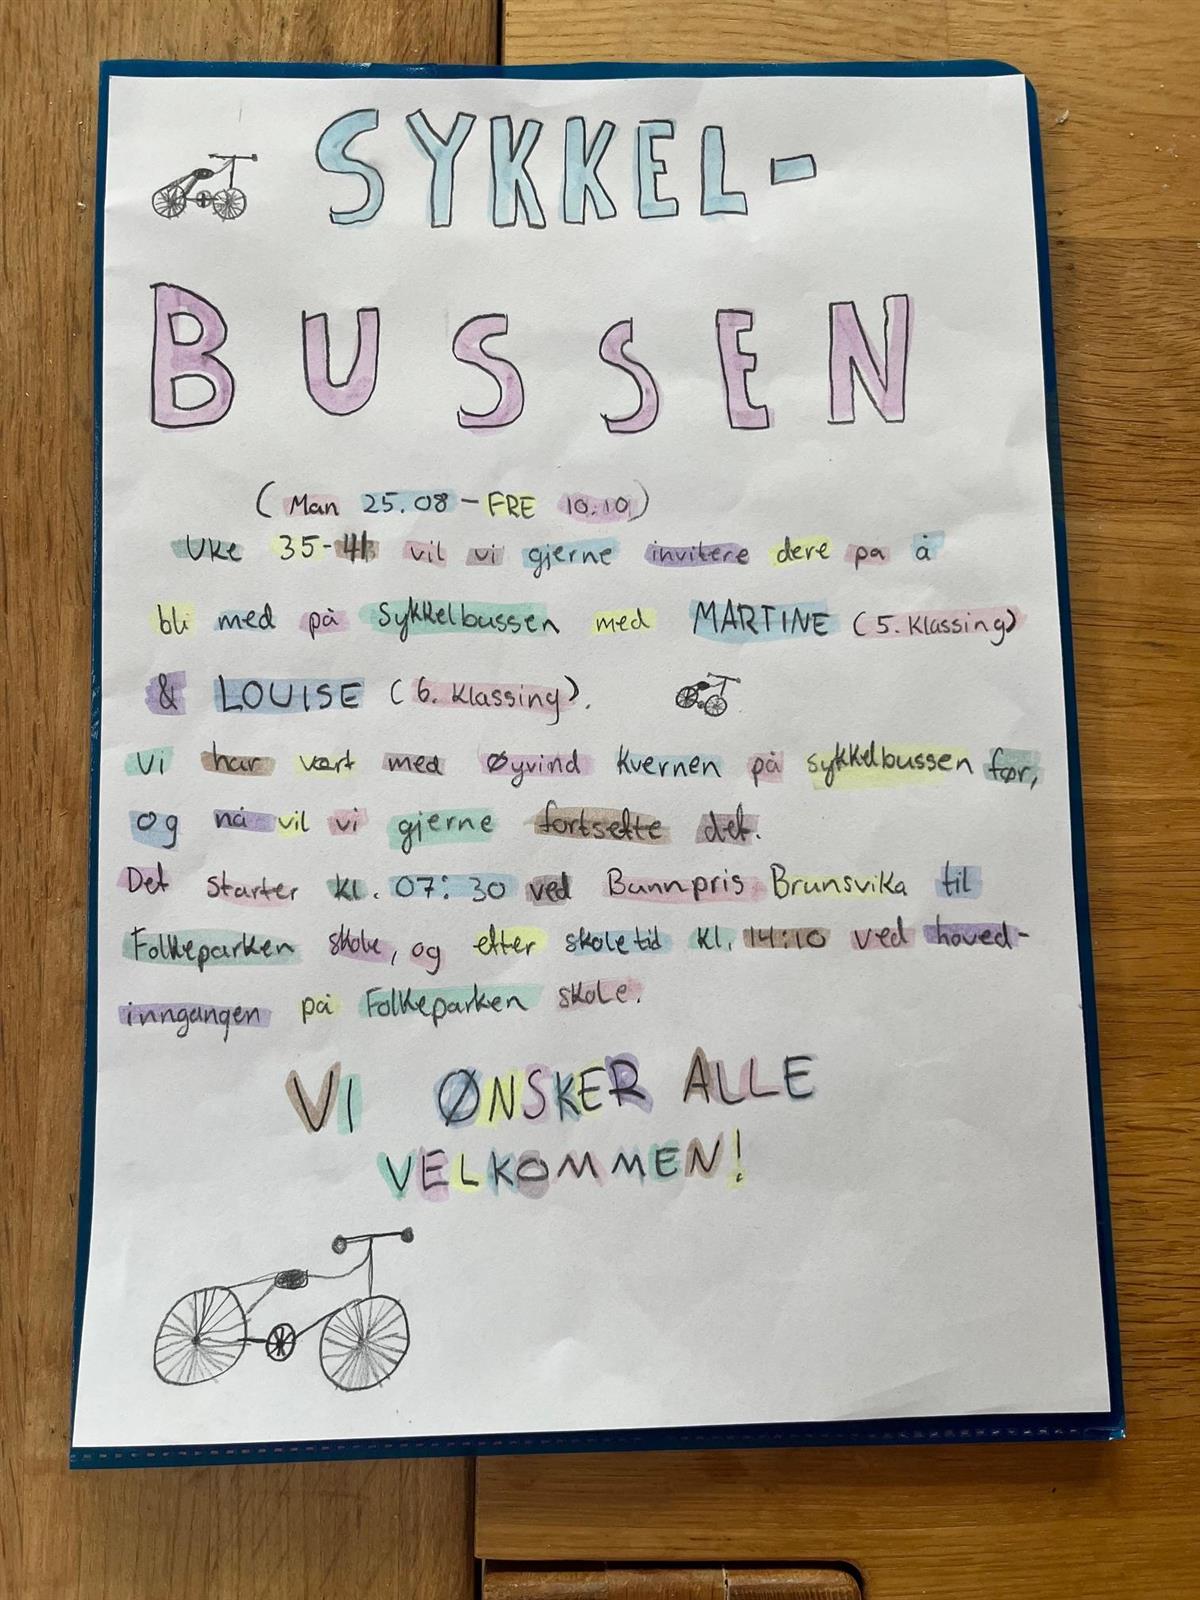 SYKKEL-
BUSSEN
(Man 25.08 - FRE 10.10)
Uke 35-41 vil vi gjerne invitere dere pa å
bli med på Sykkelbussen med MARTINE (5. Klassing)
& LOUISE (6. Klassing).
Vi har vært med Øyvind Kvernen på sykkelbussen før,
og nå vil vi gjerne fortsette det.
Det starter kl. 07:30 ved Bunnpris Brunsvika til
Folkeparken skole, og etter skoletid kl. 14:10 ved hoved-
inngangen på Folkeparken skole.
VI ØNSKER ALLE
VELKOMMEN!